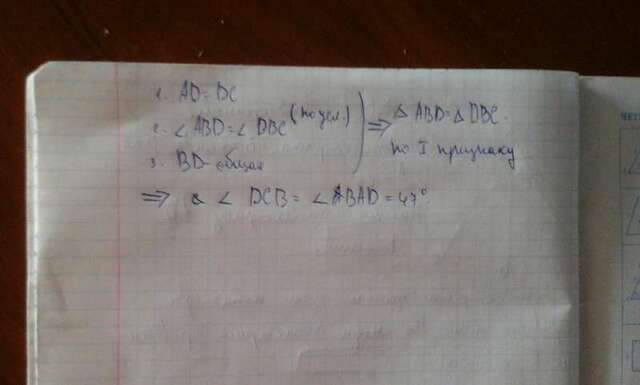 1. AD = DC
2. ∠ ABD = ∠ DBC (по усл.)
3. BD - общая
⇒ △ ABD = △ DBC.
по I признаку
⇒ ∠ DCB = ∠ BAD = 47°.